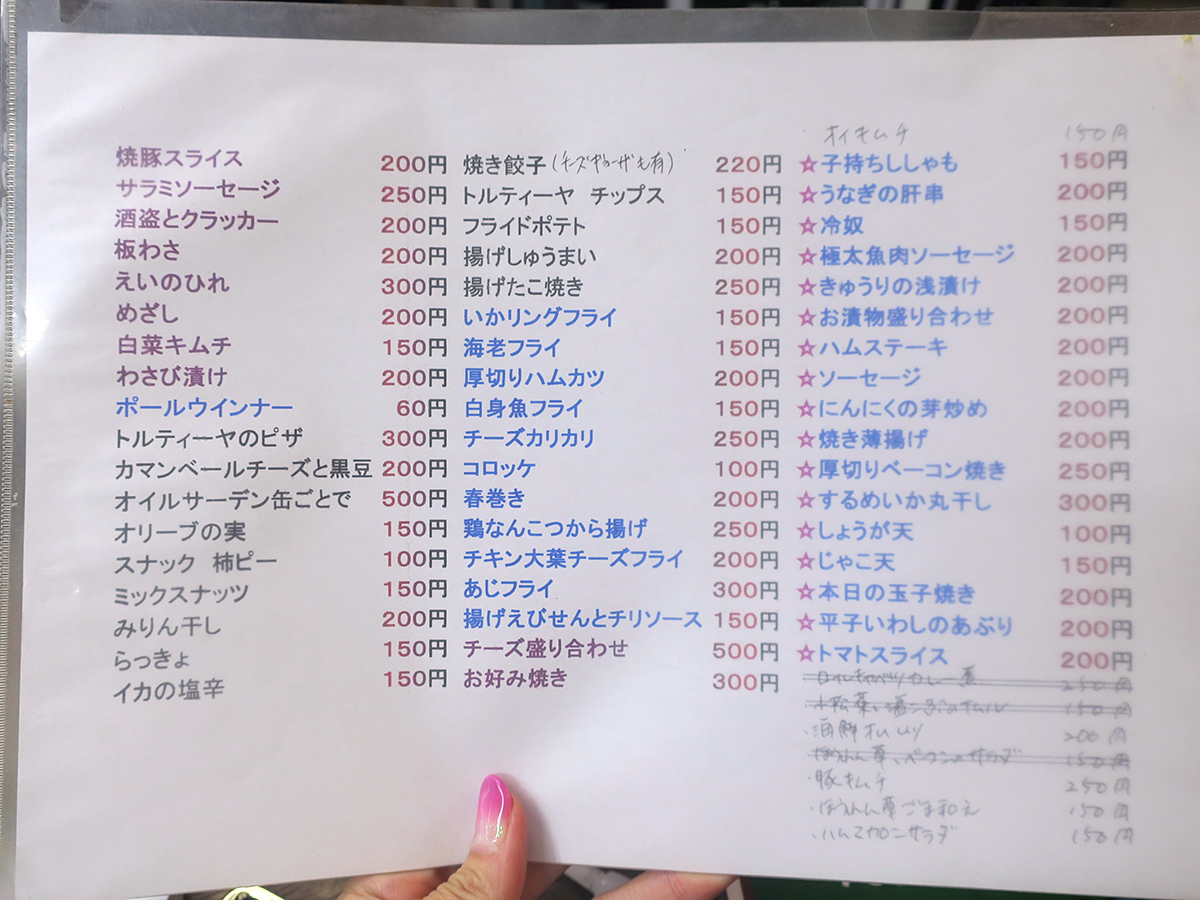 焼豚スライス 200円
サラミソーセージ 250円
酒盗とクラッカー 200円
板わさ 200円
えいのひれ 300円
めざし 200円
白菜キムチ 150円
わさび漬け 200円
ポールウインナー 60円
トルティーヤのピザ 300円
カマンベールチーズと黒豆 200円
オイルサーデン缶ごとで 500円
オリーブの実 150円
スナック 柿ピー 100円
ミックスナッツ 150円
みりん干し 200円
らっきょ 150円
イカの塩辛 150円
焼き餃子(チーズギョーザも有) 220円
トルティーヤ チップス 150円
フライドポテト 150円
揚げしゅうまい 200円
揚げたこ焼き 250円
いかリングフライ 150円
海老フライ 150円
厚切りハムカツ 200円
白身魚フライ 150円
チーズカリカリ 250円
コロッケ 100円
春巻き 200円
鶏なんこつから揚げ 250円
チキン大葉チーズフライ 200円
あじフライ 300円
揚げえびせんとチリソース 150円
チーズ盛り合わせ 500円
お好み焼き 300円
オイキムチ 150円
☆子持ちししゃも 150円
☆うなぎの肝串 200円
☆冷奴 150円
☆極太魚肉ソーセージ 200円
☆きゅうりの浅漬け 200円
☆お漬物盛り合わせ 200円
☆ハムステーキ 200円
☆ソーセージ 200円
☆にんにくの芽炒め 200円
☆焼き薄揚げ 200円
☆厚切りベーコン焼き 250円
☆するめいか丸干し 300円
☆しょうが天 100円
☆じゃこ天 150円
☆本日の玉子焼き 200円
☆平子いわしのあぶり 200円
☆トマトスライス 200円
250円
150円
・海鮮オムレツ 200円
ほうれん草とベーコンのサラダ 150円
・豚キムチ 250円
・ほうれん草ごま和え 150円
・ハムマカロニサラダ 150円